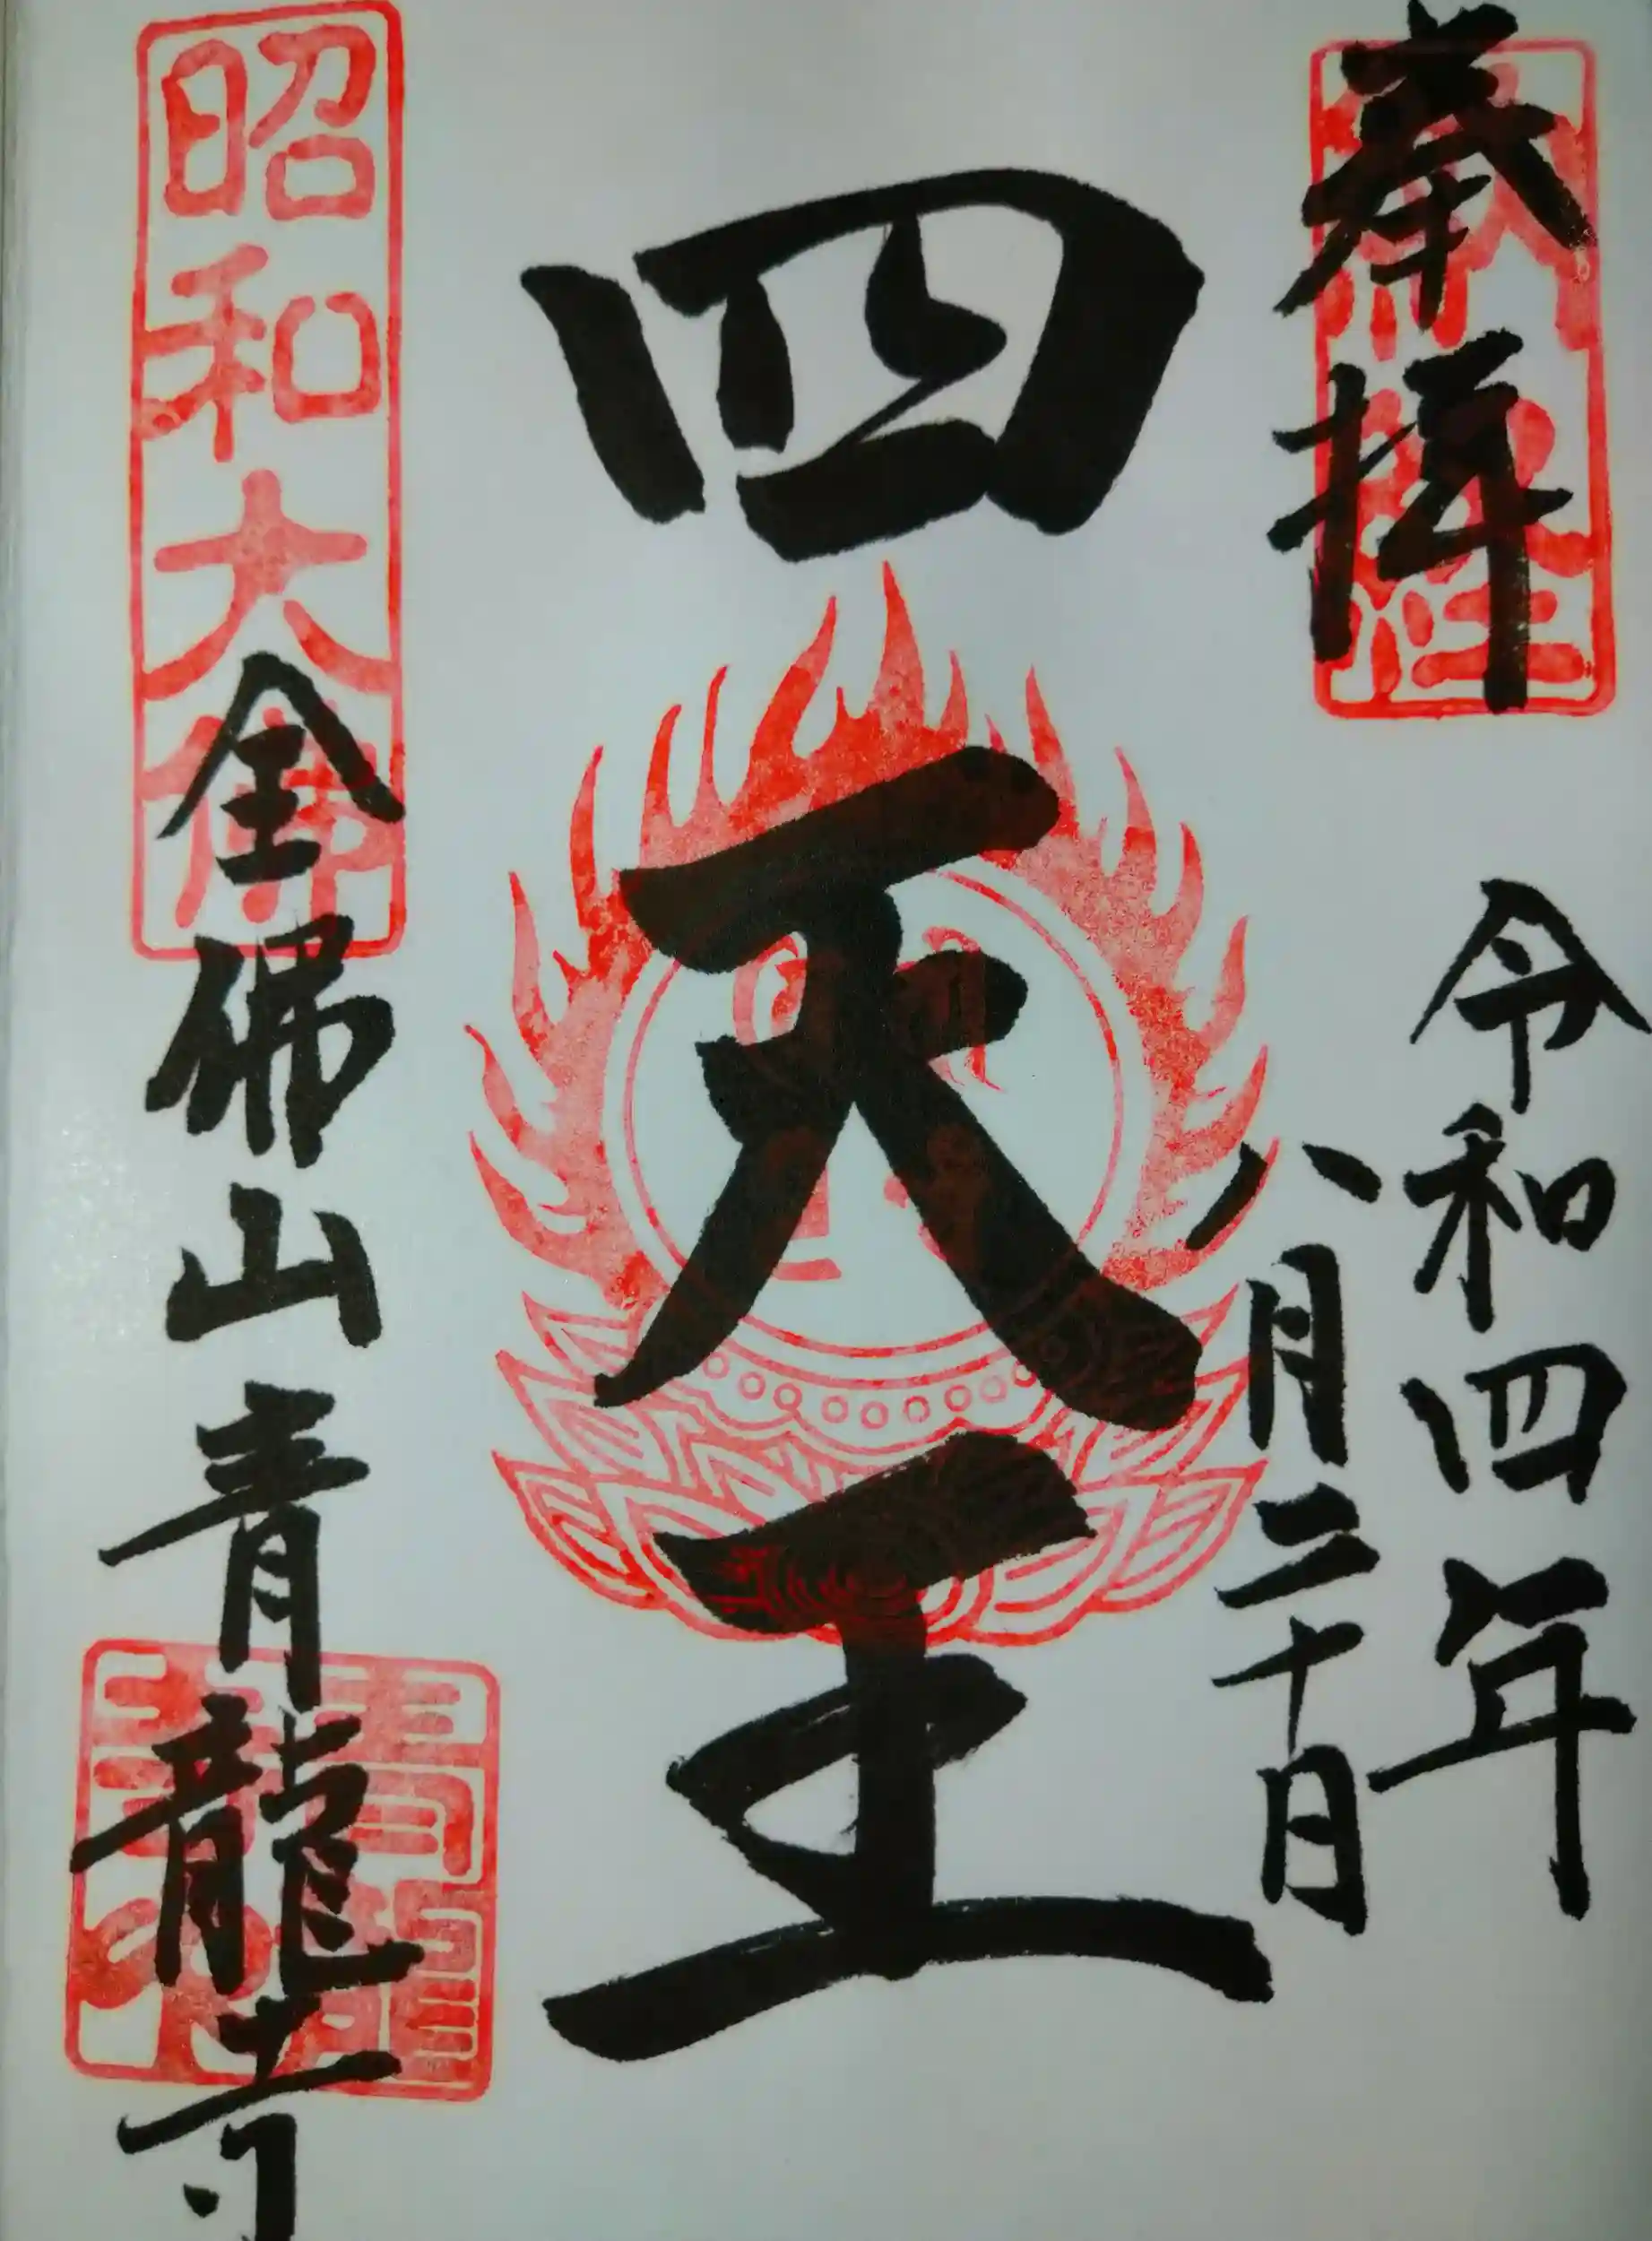 奉拝
令和四年
八月二十日
四天王
昭和大佛
全佛山青龍寺